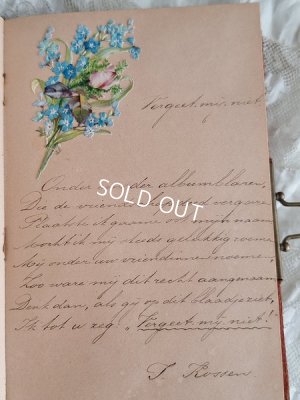 Vergeet mij niet.
Onder der albumblaren,
Die de vriendschap vergare
Plaatste ik gaarne mijn naam
Wordt ik mij steeds gelukkig
Mij onder uw vriendinnen noeme,
Zoo ware mij dit recht aangenaam
Denk dan, als gij op dit blaadje ziet,
Ik tot u zeg „Vergeet mij niet!"
SOLD OUT